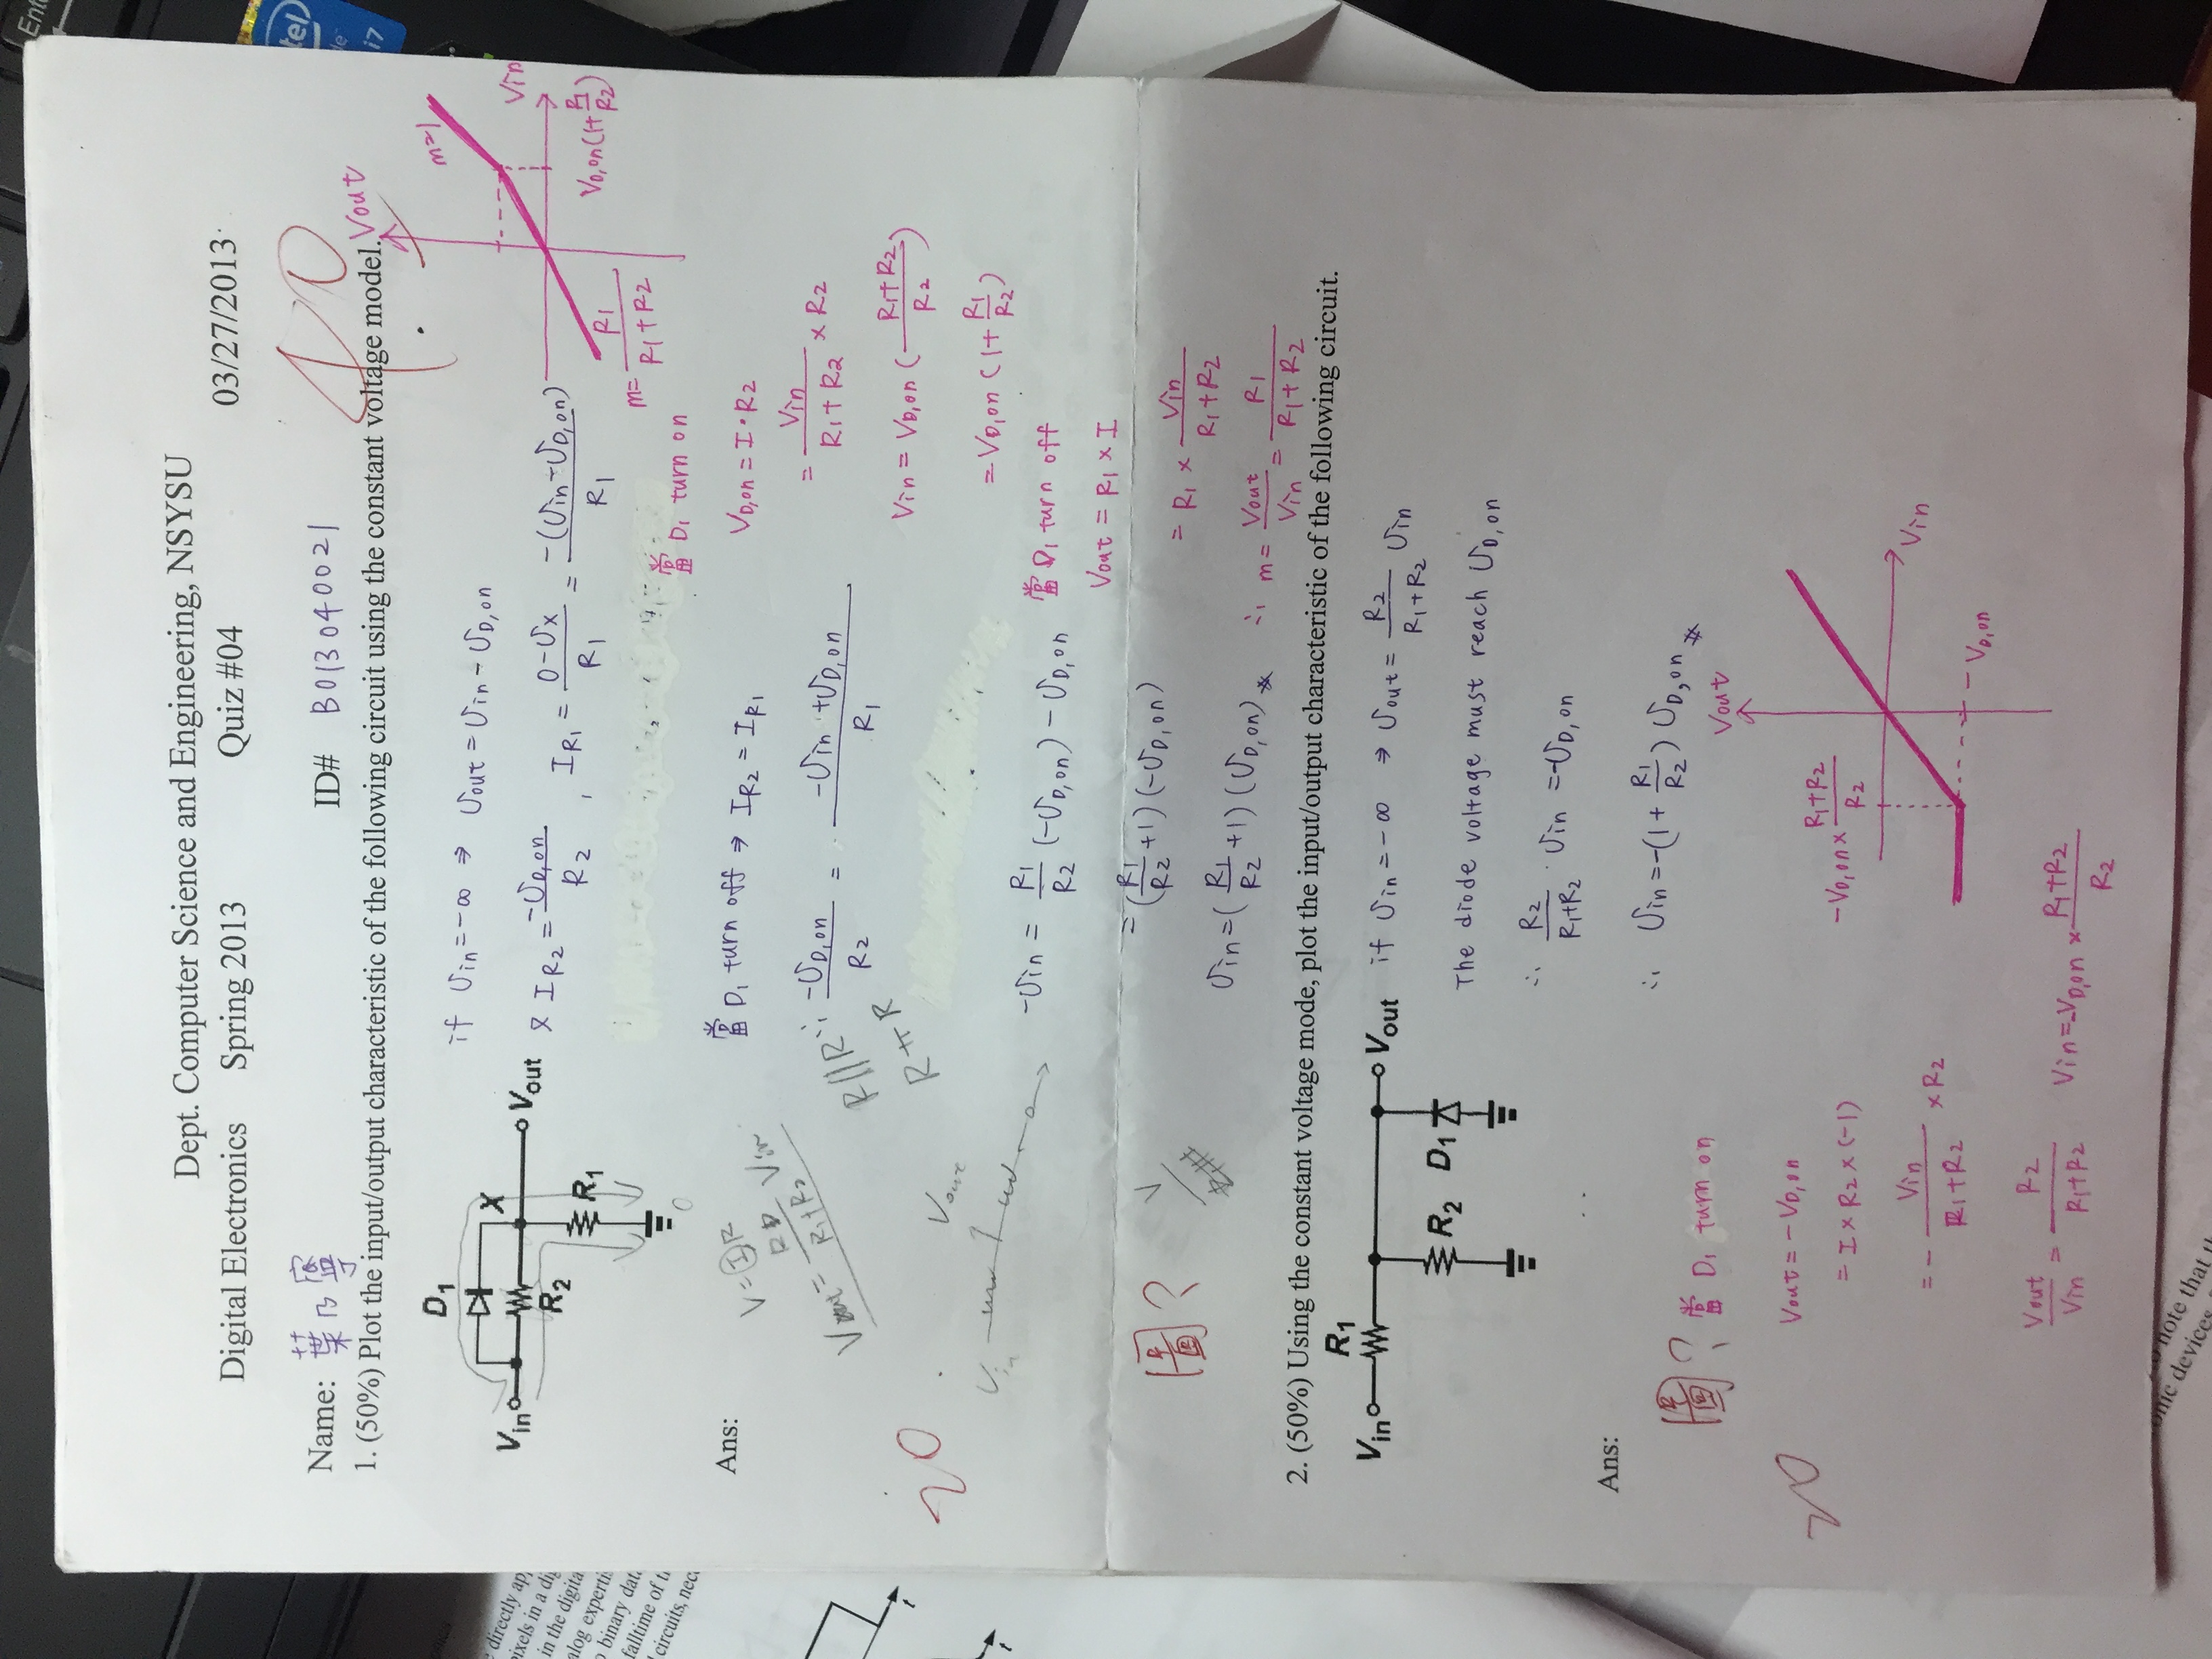 Dept. Computer Science and Engineering, NSYSU
Digital Electronics Spring 2013 Quiz #04 03/27/2013
Name: 葉乃寧 ID# B013040021
40
1. (50%) Plot the input/output characteristic of the following circuit using the constant voltage model.
D1
X
Vin
Vout
R2
R1
0
if Vin = -∞ ⇒ Vout = Vin - VD,on
又 IR2 = -VD,on / R2 , IR1 = 0-Vx / R1 = -(Vin-VD,on) / R1
Vout
m=1
Vin
VD,on(1+R1/R2)
m= R1 / R1+R2
Ans:
V=IR
Vout = / R1+R2 Vin
R//R
Vout
Vin
20
圖?
當 D1 turn off ⇒ IR2 = IR1
∴ -VD,on / R2 = -Vin +VD,on / R1
-Vin = R1/R2 (-VD,on) - VD,on
= (R1/R2 +1) (-VD,on)
Vin=( R1/R2 +1) (VD,on) #
當 D1 turn on
VD,on = I·R2
= Vin / R1+R2 × R2
Vin = VD,on ( R1+R2 / R2 )
= VD,on (1+ R1/R2 )
當 D1 turn off
Vout = R1 × I
= R1 × Vin / R1+R2
∴ m = Vout / Vin = R1 / R1+R2
2. (50%) Using the constant voltage mode, plot the input/output characteristic of the following circuit.
R1
Vin
Vout
R2 D1
if Vin = -∞ ⇒ Vout = R2 / R1+R2 Vin
The diode voltage must reach VD,on
∴ R2 / R1+R2 · Vin = -VD,on
∴ Vin = -(1+ R1/R2 ) VD,on #
Ans:
圖?
20
當 D1 turn on
Vout = - VD,on
= I × R2 × (-1)
= - Vin / R1+R2 × R2
Vout / Vin = R2 / R1+R2 Vin = -VD,on × R1+R2 / R2
Vout
-VD,on × R1+R2 / R2
Vin
- VD,on
Ente
intel
i7
directly ap
pixels in a di
in the digita
alog experti
binary dat
falltime of t
circuits, nec
t
t
note that t
onic devices